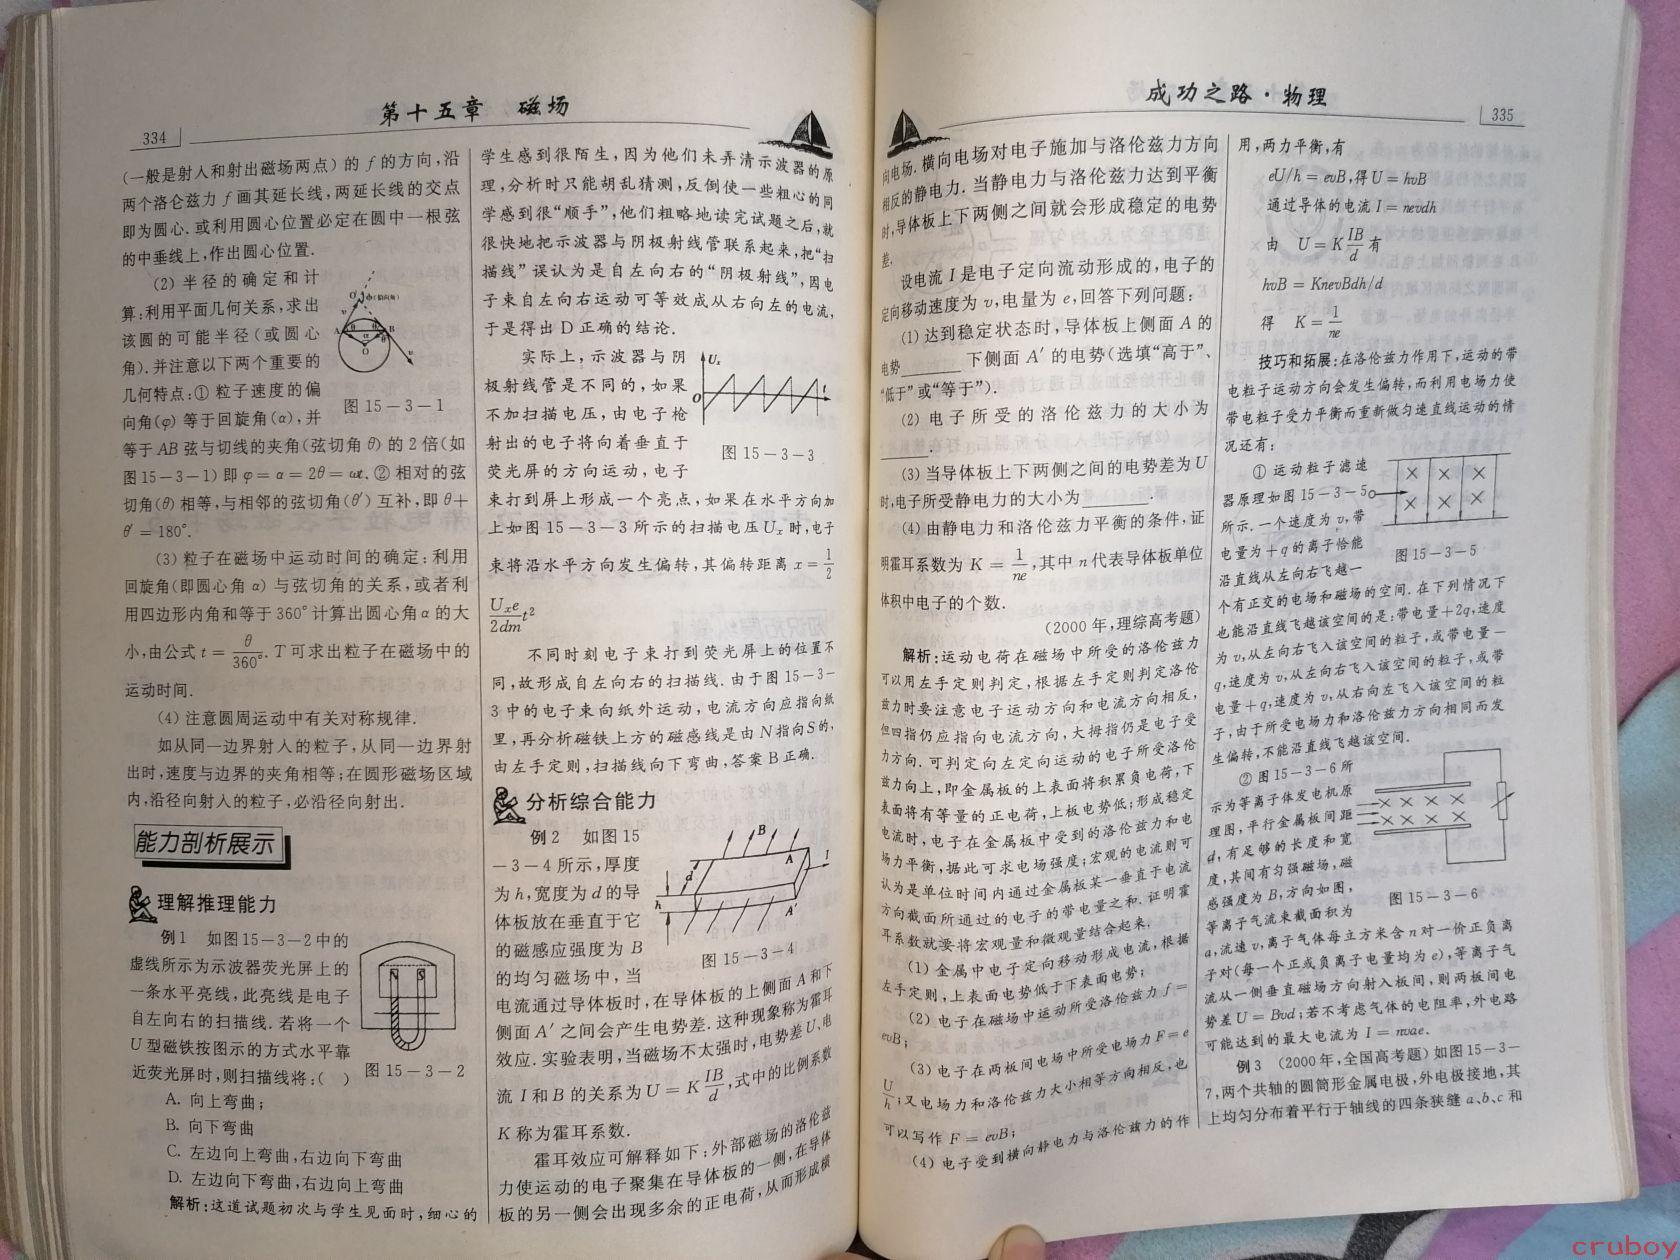 334
第十五章 磁场
(一般是射入和射出磁场两点)的 f 的方向,沿
两个洛仑兹力 f 画其延长线,两延长线的交点
即为圆心.或利用圆心位置必定在圆中一根弦
的中垂线上,作出圆心位置.
(2) 半径的确定和计
算:利用平面几何关系,求出
该圆的可能半径(或圆心
角).并注意以下两个重要的
几何特点:① 粒子速度的偏
向角(φ)等于回旋角(α),并
图 15-3-1
等于 AB 弦与切线的夹角(弦切角 θ)的 2 倍(如
图 15-3-1)即 φ = α = 2θ = ωt.② 相对的弦
切角(θ)相等,与相邻的弦切角(θ′)互补,即 θ+
θ′ = 180°.
(3) 粒子在磁场中运动时间的确定:利用
回旋角(即圆心角 α)与弦切角的关系,或者利
用四边形内角和等于 360° 计算出圆心角 α 的大
小,由公式 t = θ/360°. T 可求出粒子在磁场中的
运动时间.
(4) 注意圆周运动中有关对称规律.
如从同一边界射入的粒子,从同一边界射
出时,速度与边界的夹角相等;在圆形磁场区域
内,沿径向射入的粒子,必沿径向射出.
能力剖析展示
理解推理能力
例1 如图15-3-2中的
虚线所示为示波器荧光屏上的
一条水平亮线,此亮线是电子
自左向右的扫描线.若将一个
U 型磁铁按图示的方式水平靠
近荧光屏时,则扫描线将:( )
N S
图 15-3-2
A. 向上弯曲;
B. 向下弯曲
C. 左边向上弯曲,右边向下弯曲
D. 左边向下弯曲,右边向上弯曲
解析:这道试题初次与学生见面时,细心的
学生感到很陌生,因为他们未弄清示波器的原
理,分析时只能胡乱猜测,反倒使一些粗心的同
学感到很“顺手”,他们粗略地读完试题之后,就
很快地把示波器与阴极射线管联系起来,把“扫
描线”误认为是自左向右的“阴极射线”,因电
子束自左向右运动可等效成从右向左的电流,
于是得出 D 正确的结论.
实际上,示波器与阴
极射线管是不同的,如果
不加扫描电压,由电子枪
射出的电子将向着垂直于
荧光屏的方向运动,电子
Ux
O
t
图 15-3-3
束打到屏上形成一个亮点,如果在水平方向加
上如图 15-3-3 所示的扫描电压 Ux 时,电子
束将沿水平方向发生偏转,其偏转距离 x = 1/2
Uxe/2dm t²
不同时刻电子束打到荧光屏上的位置不
同,故形成自左向右的扫描线.由于图 15-3-
3 中的电子束向纸外运动,电流方向应指向纸
里,再分析磁铁上方的磁感线是由 N 指向 S 的,
由左手定则,扫描线向下弯曲,答案 B 正确.
分析综合能力
例2 如图 15
-3-4 所示,厚度
为 h,宽度为 d 的导
体板放在垂直于它
的磁感应强度为 B
的均匀磁场中,当
B
A
I
d
h
A′
图 15-3-4
电流通过导体板时,在导体板的上侧面 A 和下
侧面 A′ 之间会产生电势差.这种现象称为霍耳
效应.实验表明,当磁场不太强时,电势差 U、电
流 I 和 B 的关系为 U = K IB/d,式中的比例系数
K 称为霍耳系数.
霍耳效应可解释如下:外部磁场的洛伦兹
力使运动的电子聚集在导体板的一侧,在导体
板的另一侧会出现多余的正电荷,从而形成横
成功之路·物理
335
向电场.横向电场对电子施加与洛伦兹力方向
相反的静电力.当静电力与洛伦兹力达到平衡
时,导体板上下两侧之间就会形成稳定的电势
差.
设电流 I 是电子定向流动形成的,电子的
定向移动速度为 v,电量为 e,回答下列问题:
(1) 达到稳定状态时,导体板上侧面 A 的
电势________ 下侧面 A′ 的电势(选填“高于”、
“低于”或“等于”).
(2) 电子所受的洛伦兹力的大小为
______.
(3) 当导体板上下两侧之间的电势差为 U
时,电子所受静电力的大小为________.
(4) 由静电力和洛伦兹力平衡的条件,证
明霍耳系数为 K = 1/ne,其中 n 代表导体板单位
体积中电子的个数.
(2000 年,理综高考题)
解析:运动电荷在磁场中所受的洛伦兹力
可以用左手定则判定,根据左手定则判定洛伦
兹力时要注意电子运动方向和电流方向相反,
但四指仍应指向电流方向,大拇指仍是电子受
力方向.可判定向左定向运动的电子所受洛伦
兹力向上,即金属板的上表面将积累负电荷,下
表面将有等量的正电荷,上板电势低;形成稳定
电流时,电子在金属板中受到的洛伦兹力和电
场力平衡,据此可求电场强度;宏观的电流则可
认为是单位时间内通过金属板某一垂直于电流
方向截面所通过的电子的带电量之和.证明霍
耳系数就要将宏观量和微观量结合起来.
(1) 金属中电子定向移动形成电流,根据
左手定则,上表面电势低于下表面电势;
(2) 电子在磁场中运动所受洛伦兹力 f =
evB;
(3) 电子在两板间电场中所受电场力 F = e
U/h;又电场力和洛伦兹力大小相等方向相反,也
可以写作 F = evB;
(4) 电子受到横向静电力与洛伦兹力的作
用,两力平衡,有
eU/h = evB,得 U = hvB
通过导体的电流 I = nevdh
由 U = K IB/d 有
hvB = KnevBdh/d
得 K = 1/ne
技巧和拓展:在洛伦兹力作用下,运动的带
电粒子运动方向会发生偏转,而利用电场力使
带电粒子受力平衡而重新做匀速直线运动的情
况还有:
① 运动粒子滤速
器原理如图 15-3-5
所示.一个速度为 v,带
电量为 +q 的离子恰能
沿直线从左向右飞越一
图 15-3-5
个有正交的电场和磁场的空间.在下列情况下
也能沿直线飞越该空间的是:带电量 +2q,速度
为 v,从左向右飞入该空间的粒子,或带电量 -
q,速度为 v,从左向右飞入该空间的粒子,或带
电量 +q,速度为 v,从右向左飞入该空间的粒
子,由于所受电场力和洛伦兹力方向相同而发
生偏转,不能沿直线飞越该空间.
② 图 15-3-6 所
示为等离子体发电机原
理图,平行金属板间距
d,有足够的长度和宽
度,其间有匀强磁场,磁
感强度为 B,方向如图,
等离子气流束截面积为
图 15-3-6
a,流速 v,离子气体每立方米含 n 对一价正负离
子对(每一个正或负离子电量均为 e),等离子气
流从一侧垂直磁场方向射入板间,则两板间电
势差 U = Bvd;若不考虑气体的电阻率,外电路
可能达到的最大电流为 I = nvae.
例3 (2000 年,全国高考题)如图 15-3-
7,两个共轴的圆筒形金属电极,外电极接地,其
上均匀分布着平行于轴线的四条狭缝 a、b、c 和
cruboy